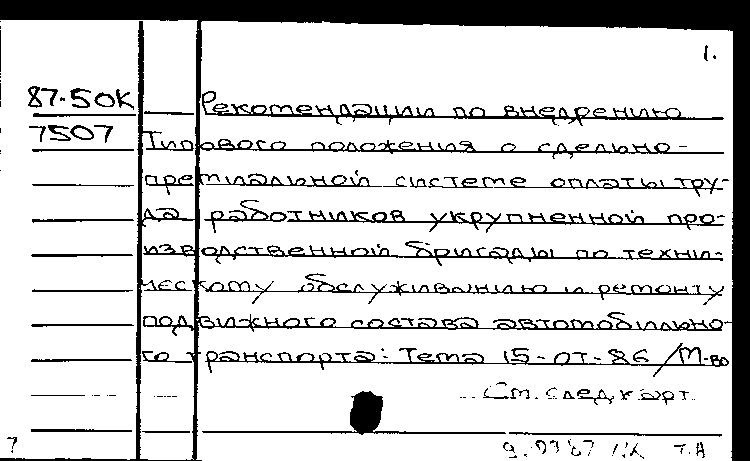 1.
87-50К Рекомендации по внедрению
7507 Типового положения о сдельно-
премиальной системе оплаты тру-
да работников укрупненной про-
изводственной бригады по техни-
ческому обслуживанию и ремонту
подвижного состава автомобильно-
го транспорта: Тема 15-от-86 /М-во
Ст. след. карт.
7